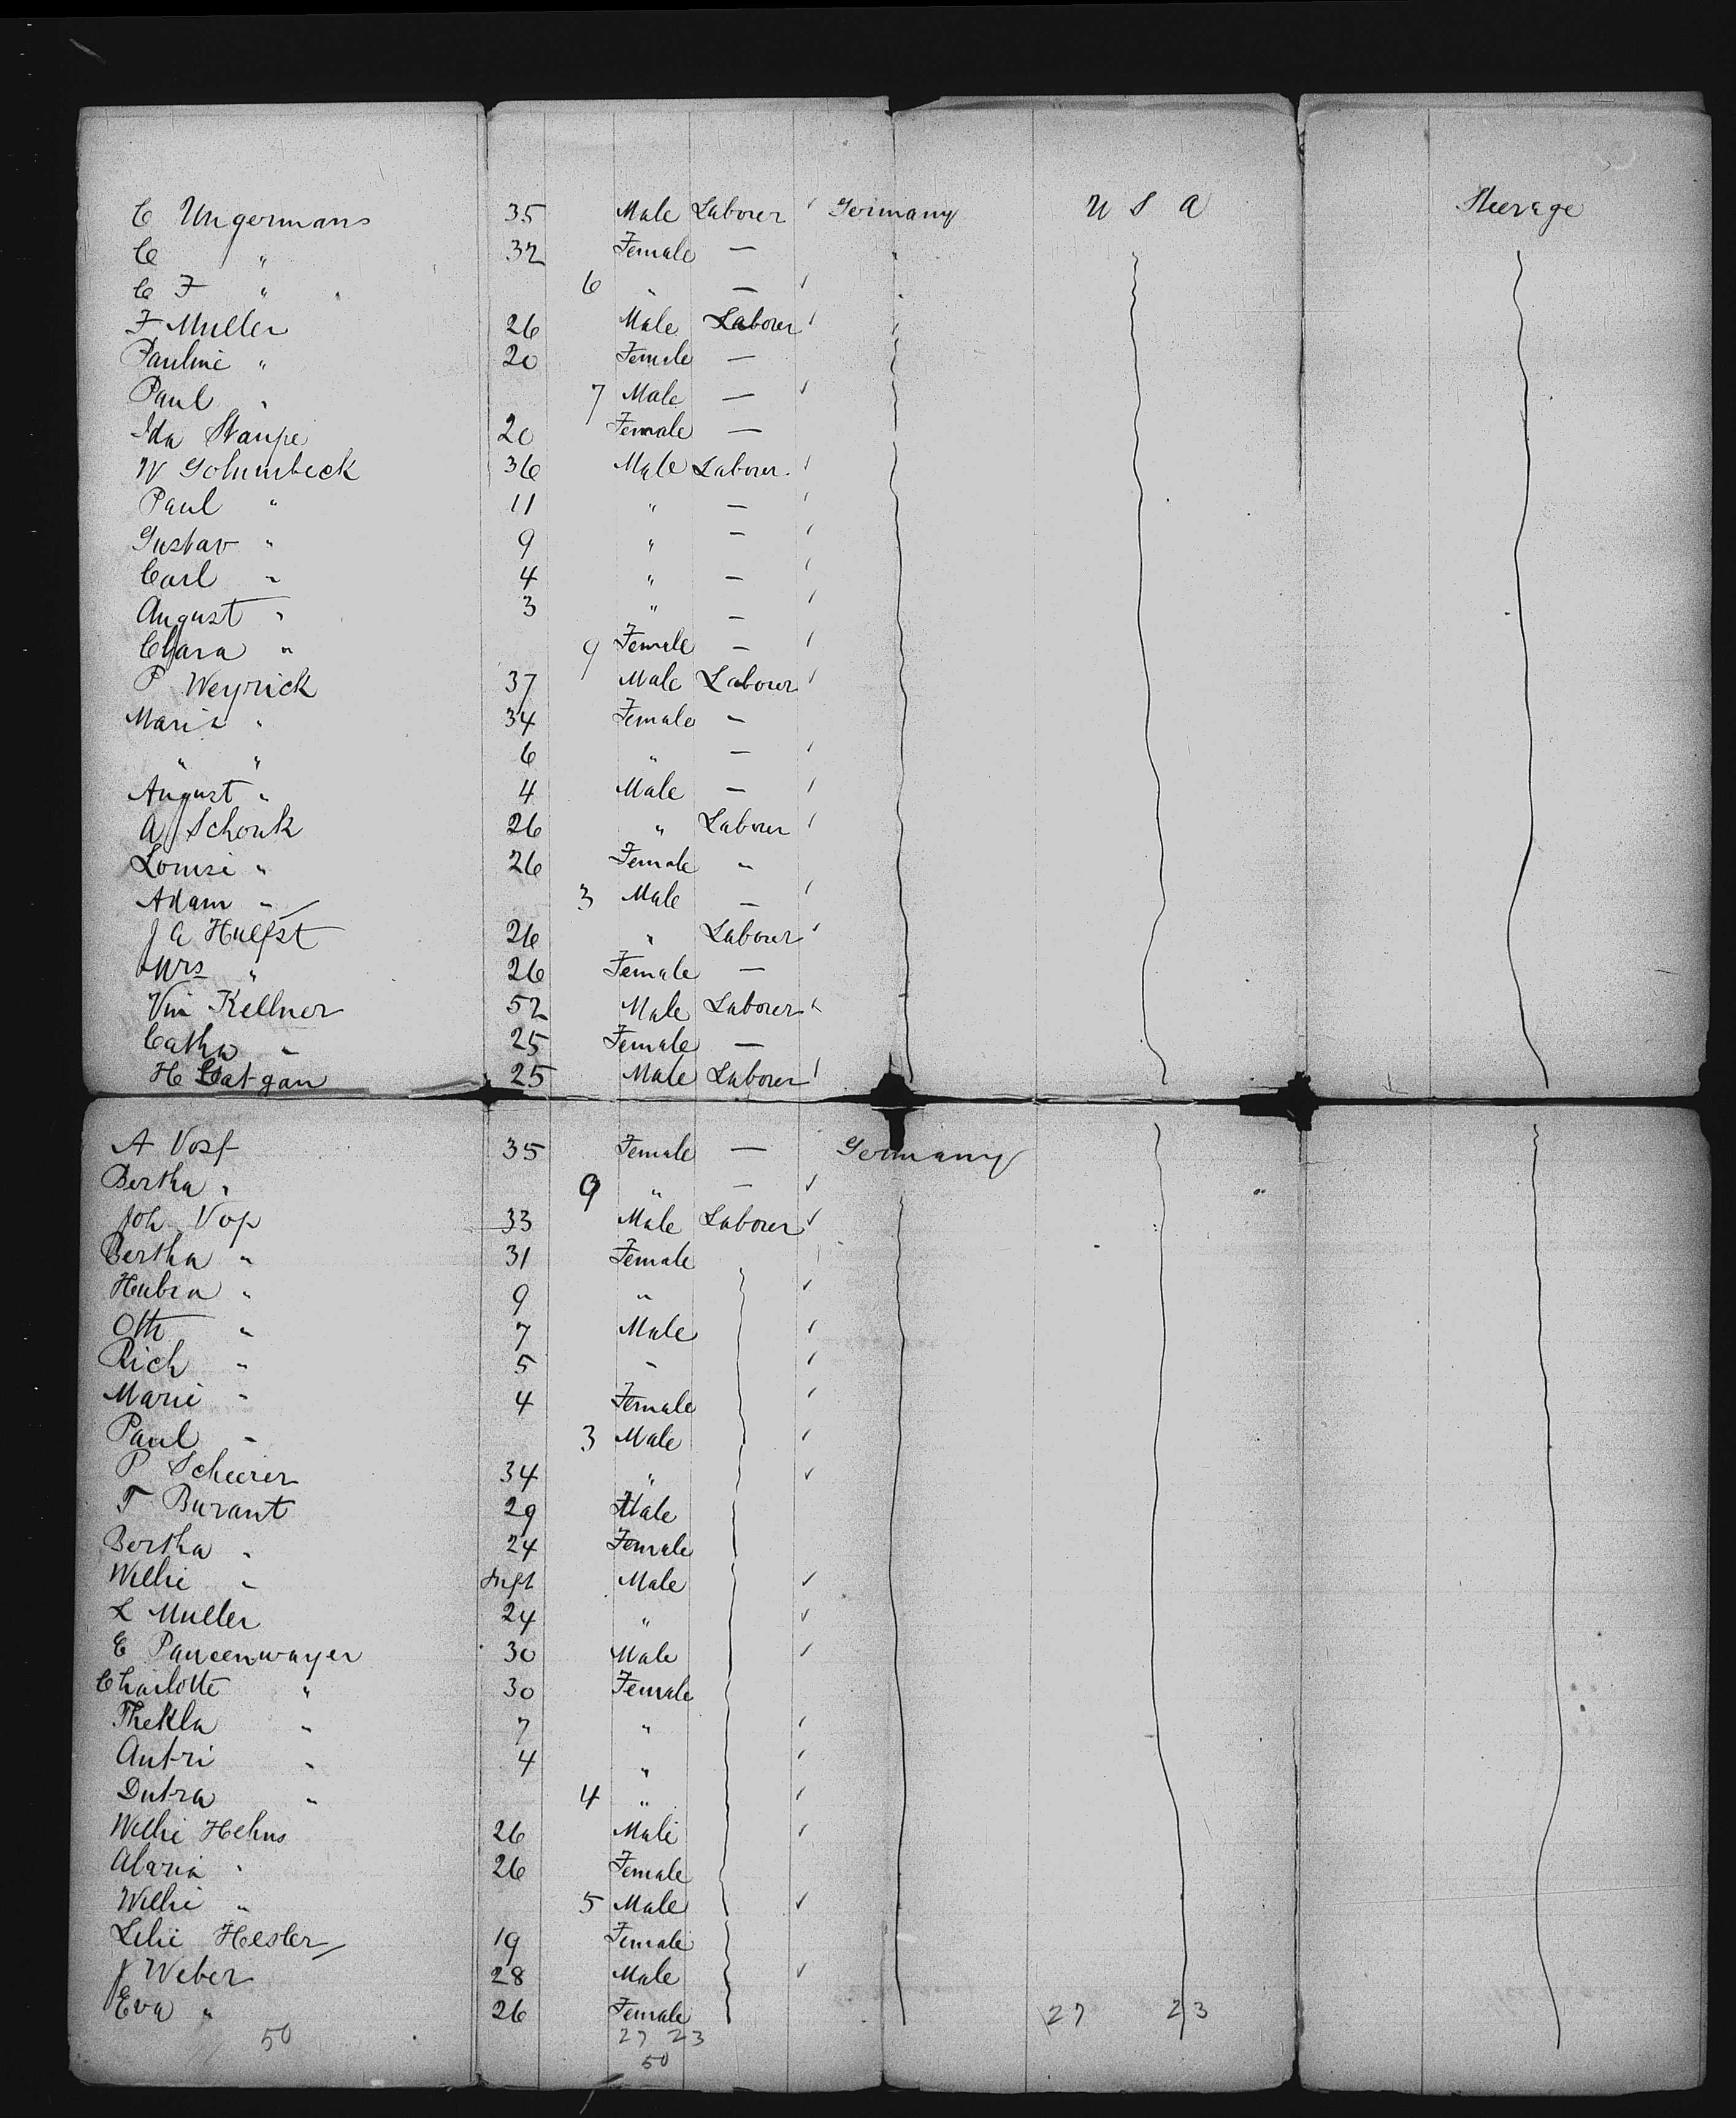 C Ungermans 35 Male Laborer Germany U S A Steerage
C " 32 Female —
C F " 6 " —
F Muller 26 Male Laborer
Pauline " 20 Female —
Paul " 7 Male —
Ida Staupe 20 Female —
W Golumbeck 36 Male Laborer
Paul " 11 " —
Gustav " 9 " —
Carl " 4 " —
August " 3 " —
Clara " 9 Female —
P Weyrick 37 Male Laborer
Maria " 34 Female —
" " 6 " —
August " 4 Male —
A Schonk 26 " Laborer
Louise " 26 Female "
Adam " 3 Male —
J A Huefst 26 " Laborer
Mrs " 26 Female —
Vin Kellner 52 Male Laborer
Catha " 25 Female —
H 25 Male Laborer
A Voss 35 Female — Germany
Bertha " 9 " —
Joh Voss 33 Male Laborer
Bertha " 31 Female
Hubra " 9 "
Otto " 7 Male
Rich " 5 "
Marie " 4 Female
Paul " 3 Male
P Scheerer 34 "
T Burant 29 Male
Bertha " 24 Female
Willie " Inft Male
L Muller 24 "
E Panzenwayer 30 Male
Charlotte " 30 Female
Thekla " 7 "
Antri " 4 "
Dutra " 4 "
Willie Helms 26 Male
Maria " 26 Female
Willie " 5 Male
Lilie Hesler 19 Female
J Weber 28 Male
Eva " 26 Female 27 23
50 27 23
50